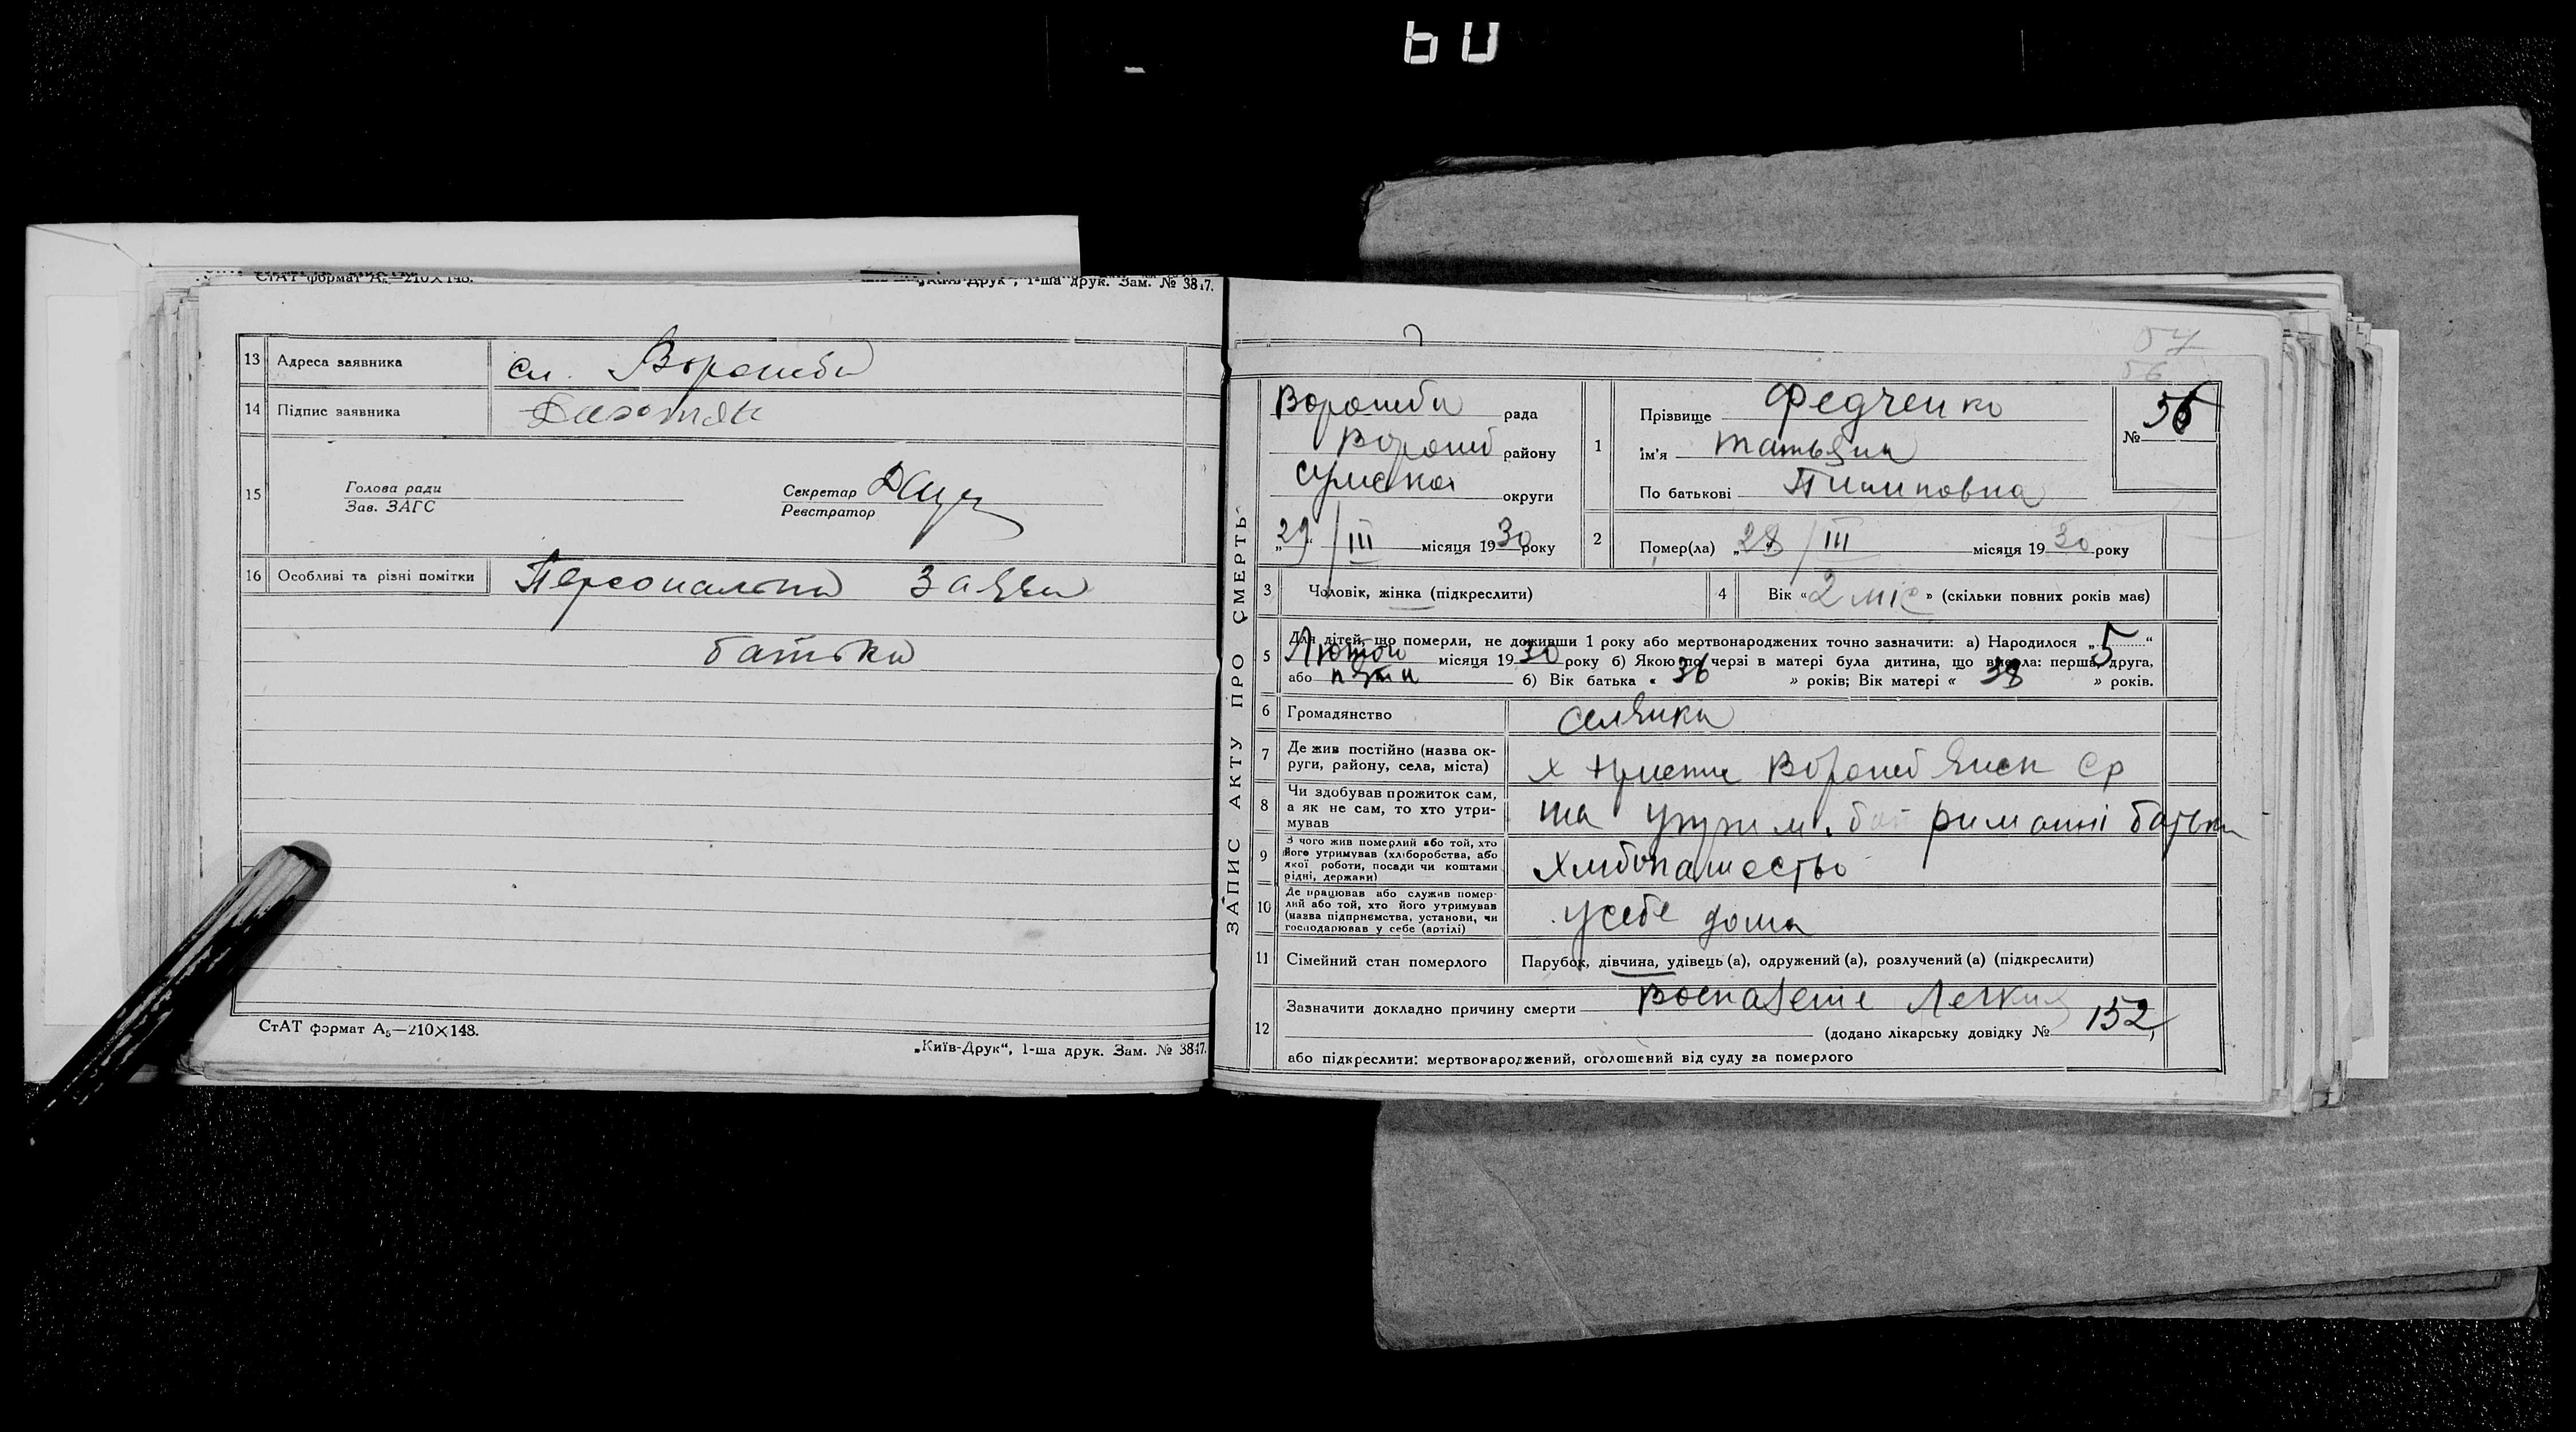 60
СтАТ формат А₅—210×148.
„Київ-Друк“, 1-ша друк. Зам. № 3817.
13 Адреса заявника сл. Ворожба
14 Підпис заявника
15 Голова ради
Зав. ЗАГС
Секретар
Реєстратор
16 Особливі та різні помітки Персональна заява
батька
СтАТ формат А₅—210×148.
„Київ-Друк“, 1-ша друк. Зам. № 3817.
57
56
ЗАПИС АКТУ ПРО СМЕРТЬ
Ворожба рада
Ворожб району
Сумской округи
„29“ / III місяця 1930 року
1 Прізвище Федченко
Ім'я Татьяна
По батькові Пилиповна
№ 56
2 Помер(ла) „28 / III місяця 1930 року
3 Чоловік, жінка (підкреслити)
4 Вік «2 міс» (скільки повних років має)
5 Для дітей, що померли, не доживши 1 року або мертвонароджених точно зазначити: а) Народилося „5“
Лютого місяця 1930 року б) Якою по черзі в матері була дитина, що вмерла: перша, друга,
або пята б) Вік батька « 36 » років; Вік матері « 38 » років.
6 Громадянство селянка
7 Де жив постійно (назва округи, району, села, міста) х Ворожбянск Ср
8 Чи здобував прожиток сам, а як не сам, то хто утримував на утрим. риманні батька
9 З чого жив померлий або той, хто його утримував (хліборобства, або якої роботи, посади чи коштами рідні, держави) хлібопашество
10 Де працював або служив померлий або той, хто його утримував (назва підприємства, установи, чи господарював у себе (артілі) у себе дома
11 Сімейний стан померлого Парубок, дівчина, удівець (а), одружений (а), розлучений (а) (підкреслити)
12 Зазначити докладно причину смерти Воспаление Легких
(додано лікарську довідку № 152)
або підкреслити: мертвонароджений, оголошений від суду за померлого